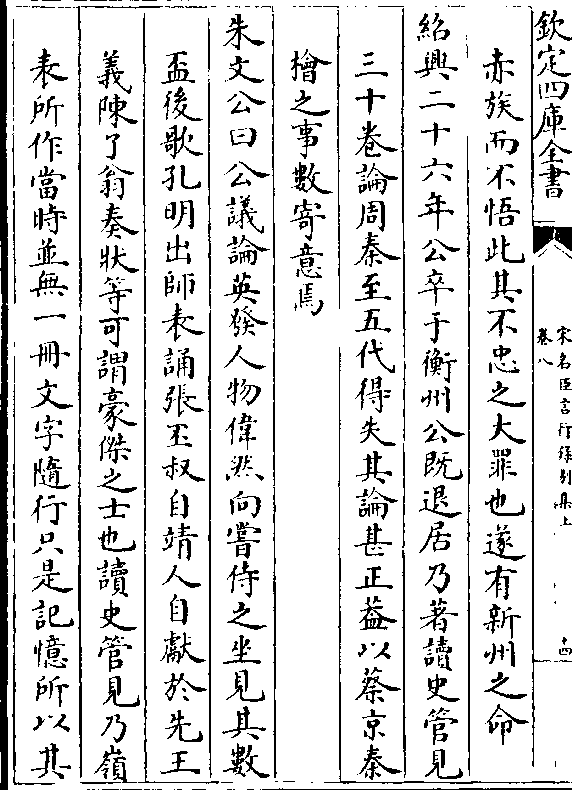 欽定四庫全書
宋名臣言行録别集上
卷八
十四
赤族而不悟此其不忠之大罪也遂有新州之命
紹興二十六年公卒于衡州公既退居乃著讀史管見
三十卷論周秦至五代得失其論甚正葢以蔡京秦
檜之事數寄意焉
朱文公曰公議論英發人物偉然向嘗侍之坐見其數
盃後歌孔明出師表誦張玊叔自靖人自獻於先王
義陳了翁奏狀等可謂豪傑之士也讀史管見乃嶺
表所作當時並無一冊文字隨行只是記憶所以其